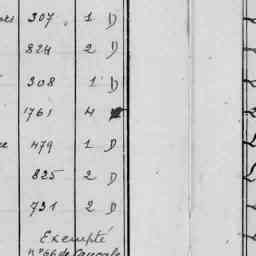 307 1 D
824 2 D
308 1 D
1761 4
479 1 D
825 2 D
731 2 D
Exempté
n° 66 de